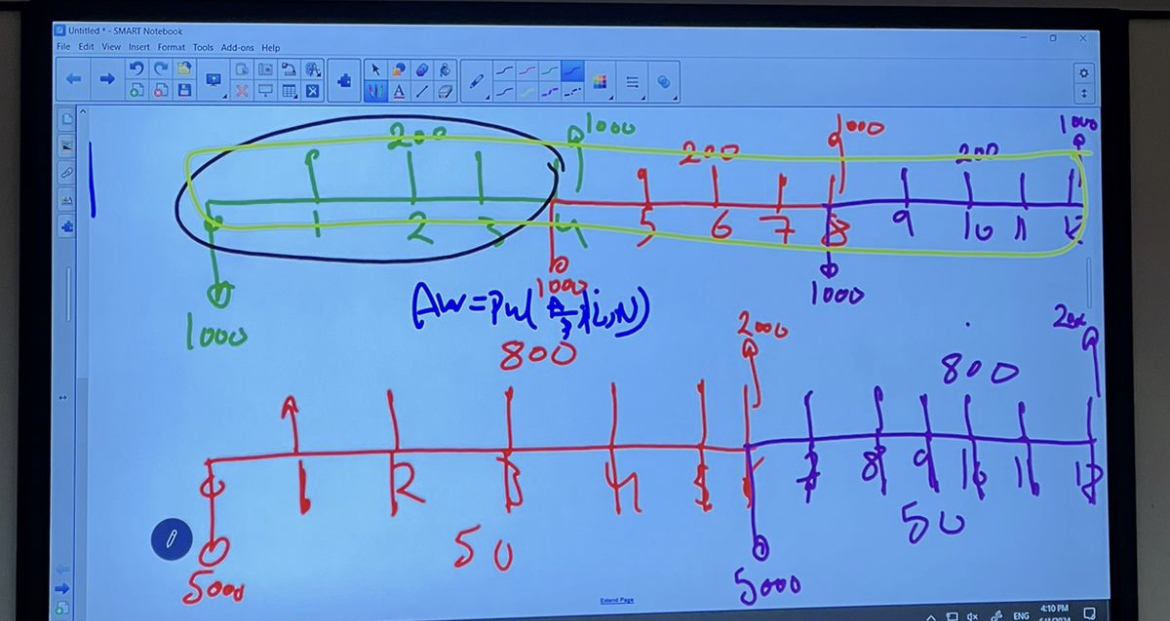 Untitled * - SMART Notebook
File Edit View Insert Format Tools Add-ons Help
A
200 1000 200 1000 200 1000
1 2 3 4 5 6 7 8 9 10 11 12
1000 1000 1000
AW=PW(A/P,i,N)
800 2000 800
1 2 3 4 5 8 9 10 11 12
50 50
5000 5000
Extend Page
ENG 4:10 PM